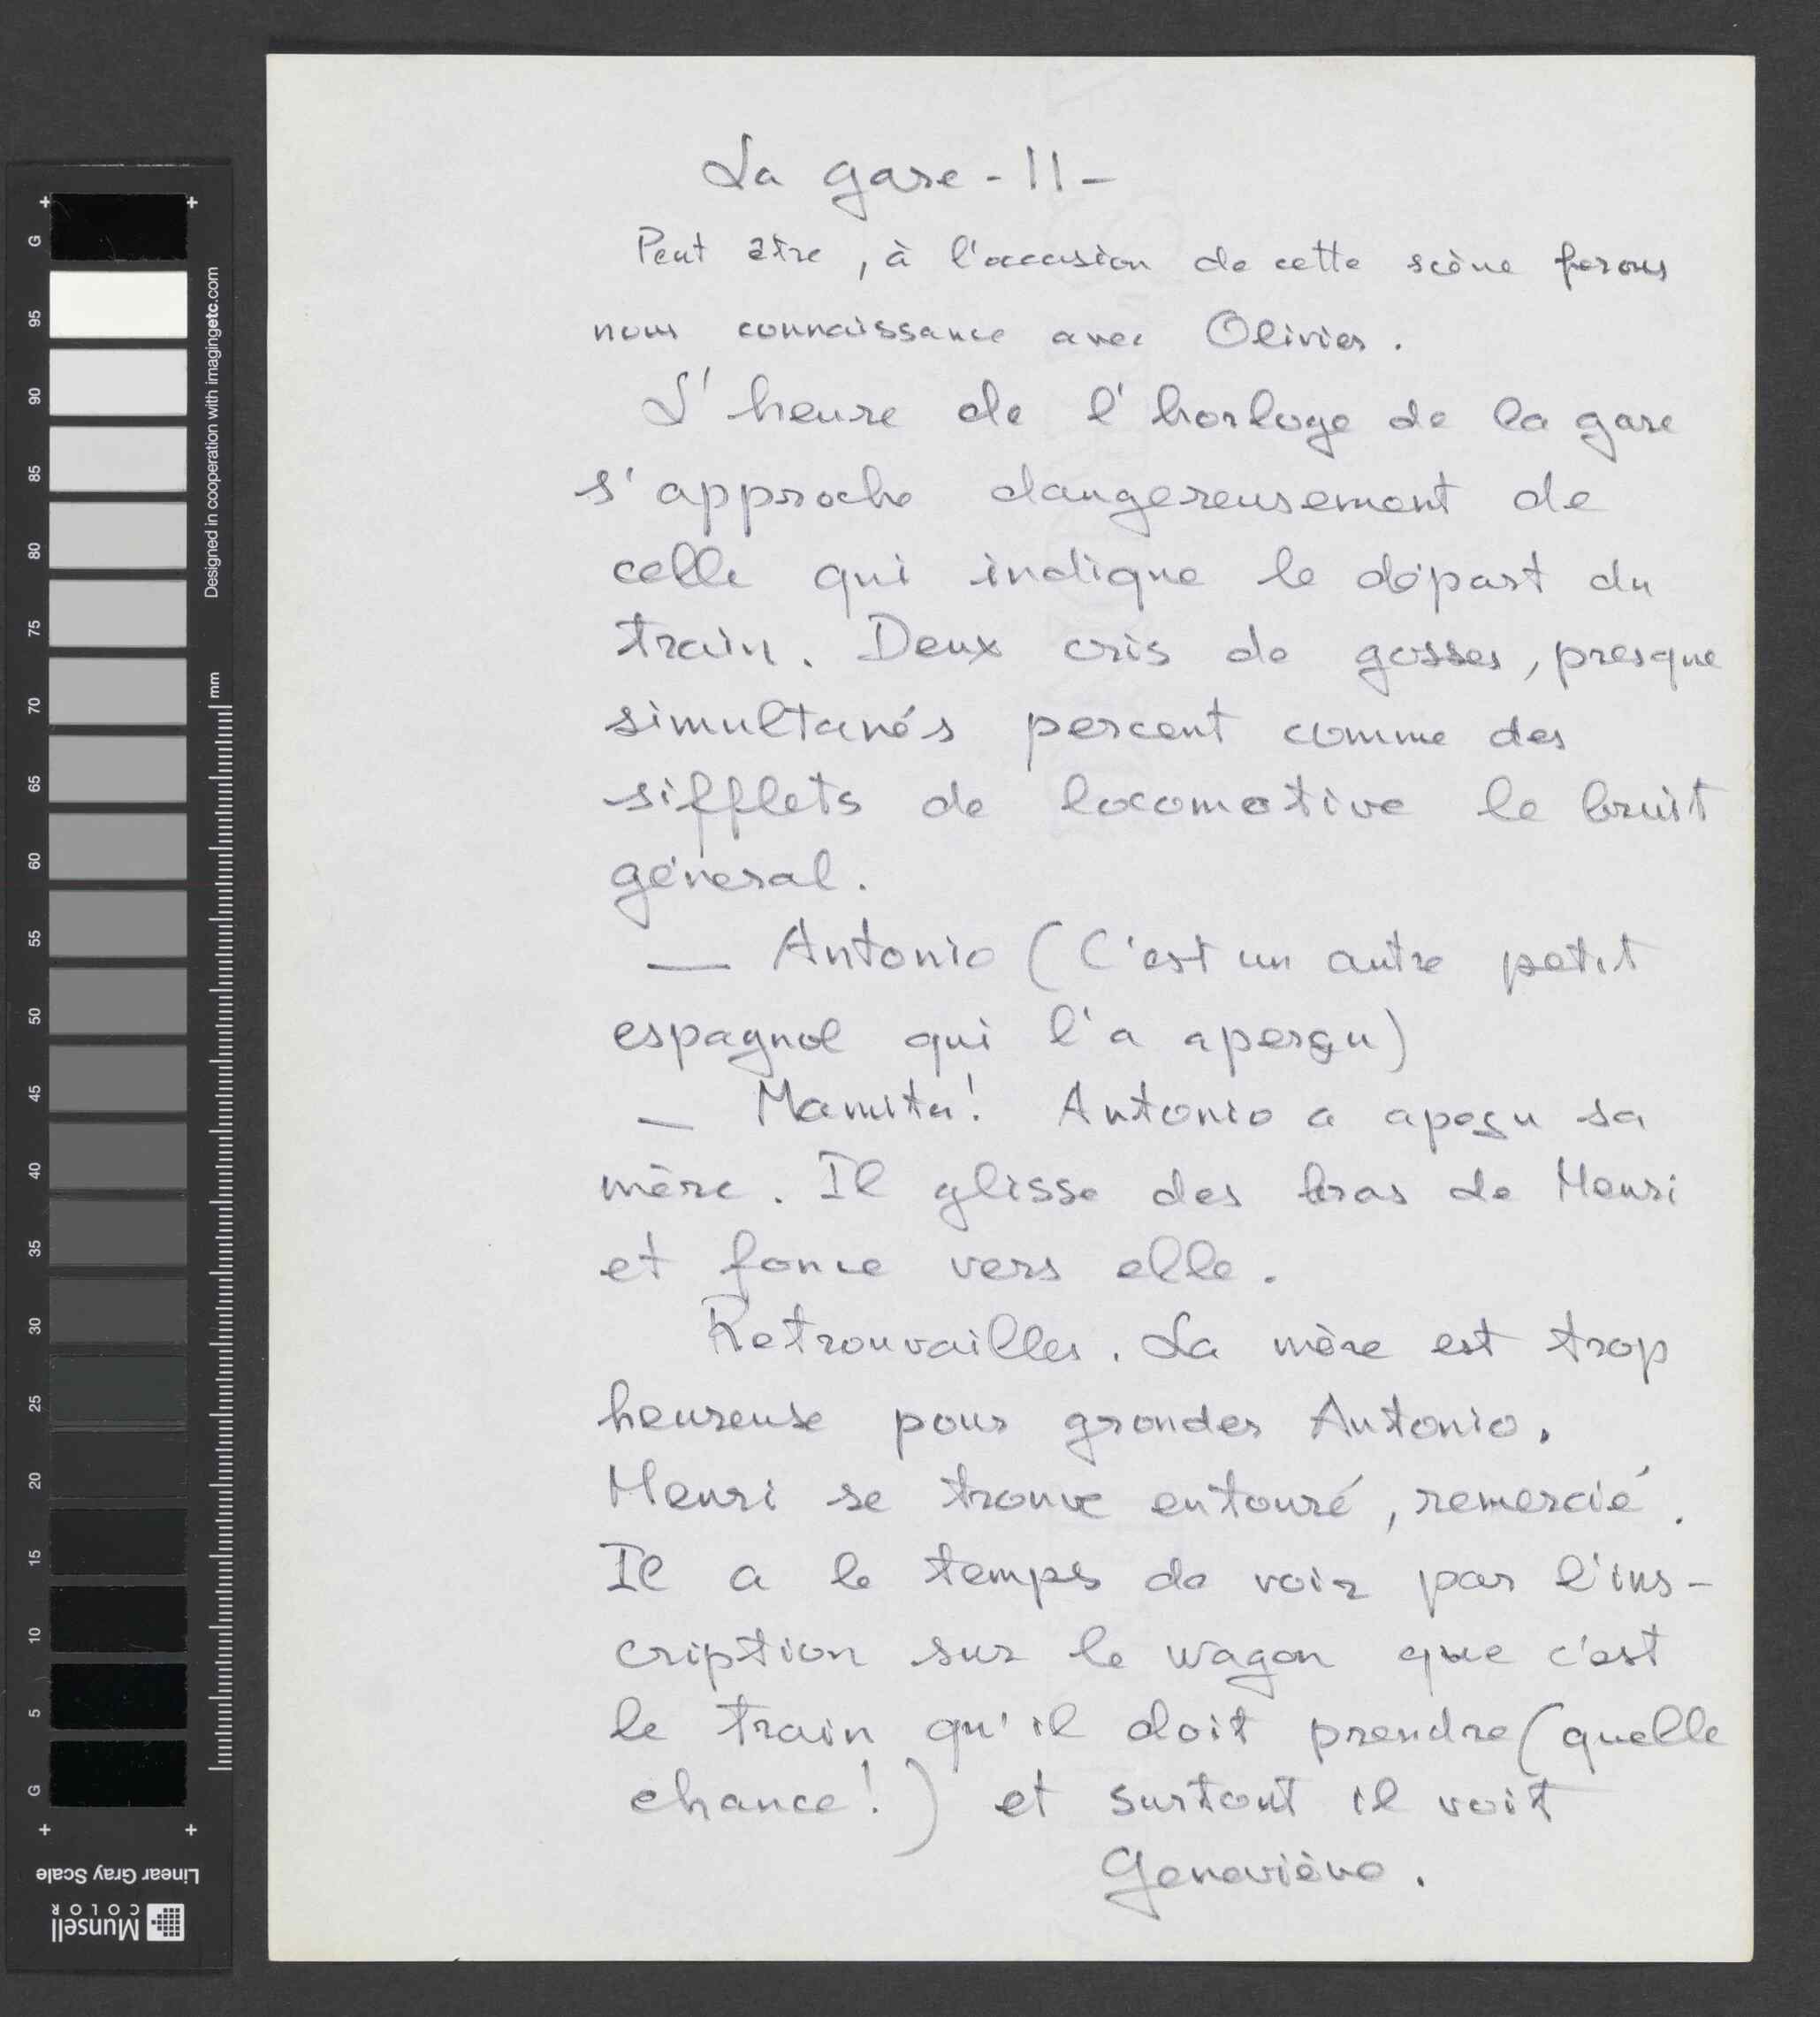 La gare - II -
Peut être, à l'occasion de cette scène ferons
nous connaissance avec Olivier.
L'heure de l'horloge de la gare
s'approche dangereusement de
celle qui indique le départ du
train. Deux cris de gosses, presque
simultanés percent comme des
sifflets de locomotive le bruit
géneral.
— Antonio (C'est un autre petit
espagnol qui l'a aperçu)
— Mamita! Antonio a apeçu sa
mère. Il glisse des bras de Henri
et fonce vers elle.
Retrouvailles. La mère est trop
heureuse pour gronder Antonio.
Henri se trouve entouré, remercié.
Il a le temps de voir par l'ins-
cription sur le wagon que c'est
le train qu'il doit prendre (quelle
chance!) et surtout il voit
Geneviève.
G
95
90
85
80
75
70
65
60
55
50
45
40
35
30
25
20
15
10
5
G
Designed in cooperation with imagingetc.com
mm
Linear Gray Scale
Munsell
COLOR